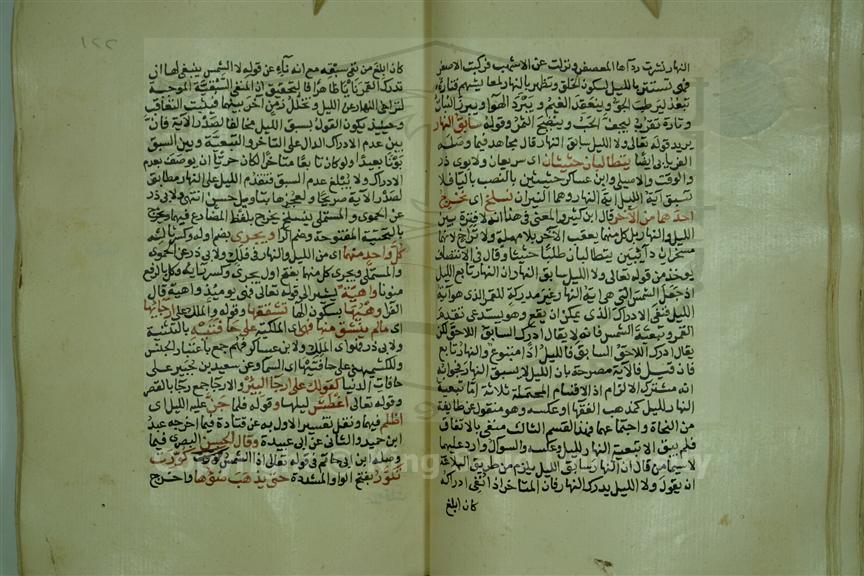 النهار نشرت رداها المعصفر ونزلت عن الاشهب فركبت الاصفر
فهى تستتر بالليل لسكون الخلق وتظهر بالنهار لمعايشهم فتارة
تبعد ليرطب الجو وينعقد الغيم ويبرد الهوا ويبرز النبات
وتارة تقرب ليجف الحب وينضج الثمر وقوله سابق النهار
يريد قوله تعالى ولا الليل سابق النهار قال مجاهد فيما وصله
الفريابي ايضا يتطالبان حثيثان اى سريعان ولابوى ذر
والوقت والاصيلى وابن عساكر حثيثين بالنصب بالياء فلا
تسبق اية الليل اية النهار وهما النيران نسلخ اى نخرج
احدهما من الاخر قال ابن كثير والمعنى فى هذا انه لا فترة بين
الليل والنهار بل كل منهما يعقب الاخر بلا مهلة ولا تراخ لانهما
مسخران دائبين يتطالبان طلبا حثيثا وقال فى الانتصاف
يوخذ من قوله تعالى ولا الليل سابق النهار ان النهار تابع لليل
اذ جعل الشمس التى هى اية النهار غير مدركة للقمر الذى هو اية
الليل فنفى الادراك الذى يمكن ان يقع وهو يستدعى تقدم
القمر وتبعية الشمس فانه لا يقال ادرك السابق اللاحق لكن
يقال ادرك اللاحق السابق فالليل اذا متبوع والنهار تابع
فان قيل فالاية مصرحة بان الليل لا يسبق النهار فجوابه
انه مشترك الالزام اذ الاقسام المحتملة ثلاثة اما تبعية
النهار لليل كمذهب الفقها او عكسه وهو منقول عن طائفة
من النحاة واجتماعهما فهذا القسم الثالث منفى بالاتفاق
فلم يبق الا تبعية النهار لليل وعكسه والسوال وارد عليهما
لا سيما من قال ان النهار سابق الليل يلزم من طريق البلاغة
ان يقول ولا الليل يدرك النهار فان المتاخر اذا نفى ادراكه
كان ابلغ
كان ابلغ من نفى سبقه مع انه ناء عن قوله لا الشمس ينبغى لها ان
تدرك القمر نايا ظاهرا فالتحقيق ان المنفى السبقية الموجبة
لتراخى النهار عن الليل وتخلل زمن اخر بينهما فيثبت التعاقب
وحينئذ يكون القول بسبق الليل مخالفا لصدر الاية فان
بين عدم الادراك الدال على التاخر والتبعية وبين السبق
بونا بعيدا ولو كان تابعا متاخرا لكان حريا ان يوصف بعدم
الادراك ولا يبلغ عدم السبق فتقدم الليل على النهار مطابق
لصدر الاية صريحا ولعجزها بتاويل حسن انتهى ولابى ذر
عن الحموى والمستملى ينسلخ يخرج بلفظ المضارع فيهما ويخرج
بالتحتية المفتوحة وضم الرا ويجرى بضم اوله وكسر ثالثه
كل واحد منهما اى من الليل والنهار فى فلك ولابى ذر عن الحموى
والمستملى ويجرى كل منهما بفتح اول يجرى وكسر ثالثه وكل بالرفع
منونا واهية يشير الى قوله تعالى فهى يومئذ واهية قال
الفرا وهيها بسكون الها تشققها وقوله والملك على ارجائها
اى مالم ينشق منها فهى اى الملائكة على حافتيه بالتثنية
ولابى ذر فهو اى الملك ولابن عساكر فهم جمع باعتبار الجنس
وللكشميهنى على حافتيها اى السما وعن سعيد بن جبير على
حافات الدنيا كقولك على ارجا البير والارجا جمع رجا بالقصر
وقوله تعالى اغطش ليلها وقوله فلما جن عليه الليل اى
اظلم فيهما ونقل تفسير الاول به عن قتادة فيما اخرجه عبد
ابن حميد والثانى عن ابى عبيدة وقال الحسن البصرى فيما
وصله ابن ابى حاتم فى قوله تعالى اذا الشمس كورت
تكور بفتح الواو المشددة حتى يذهب ضوها واخرج